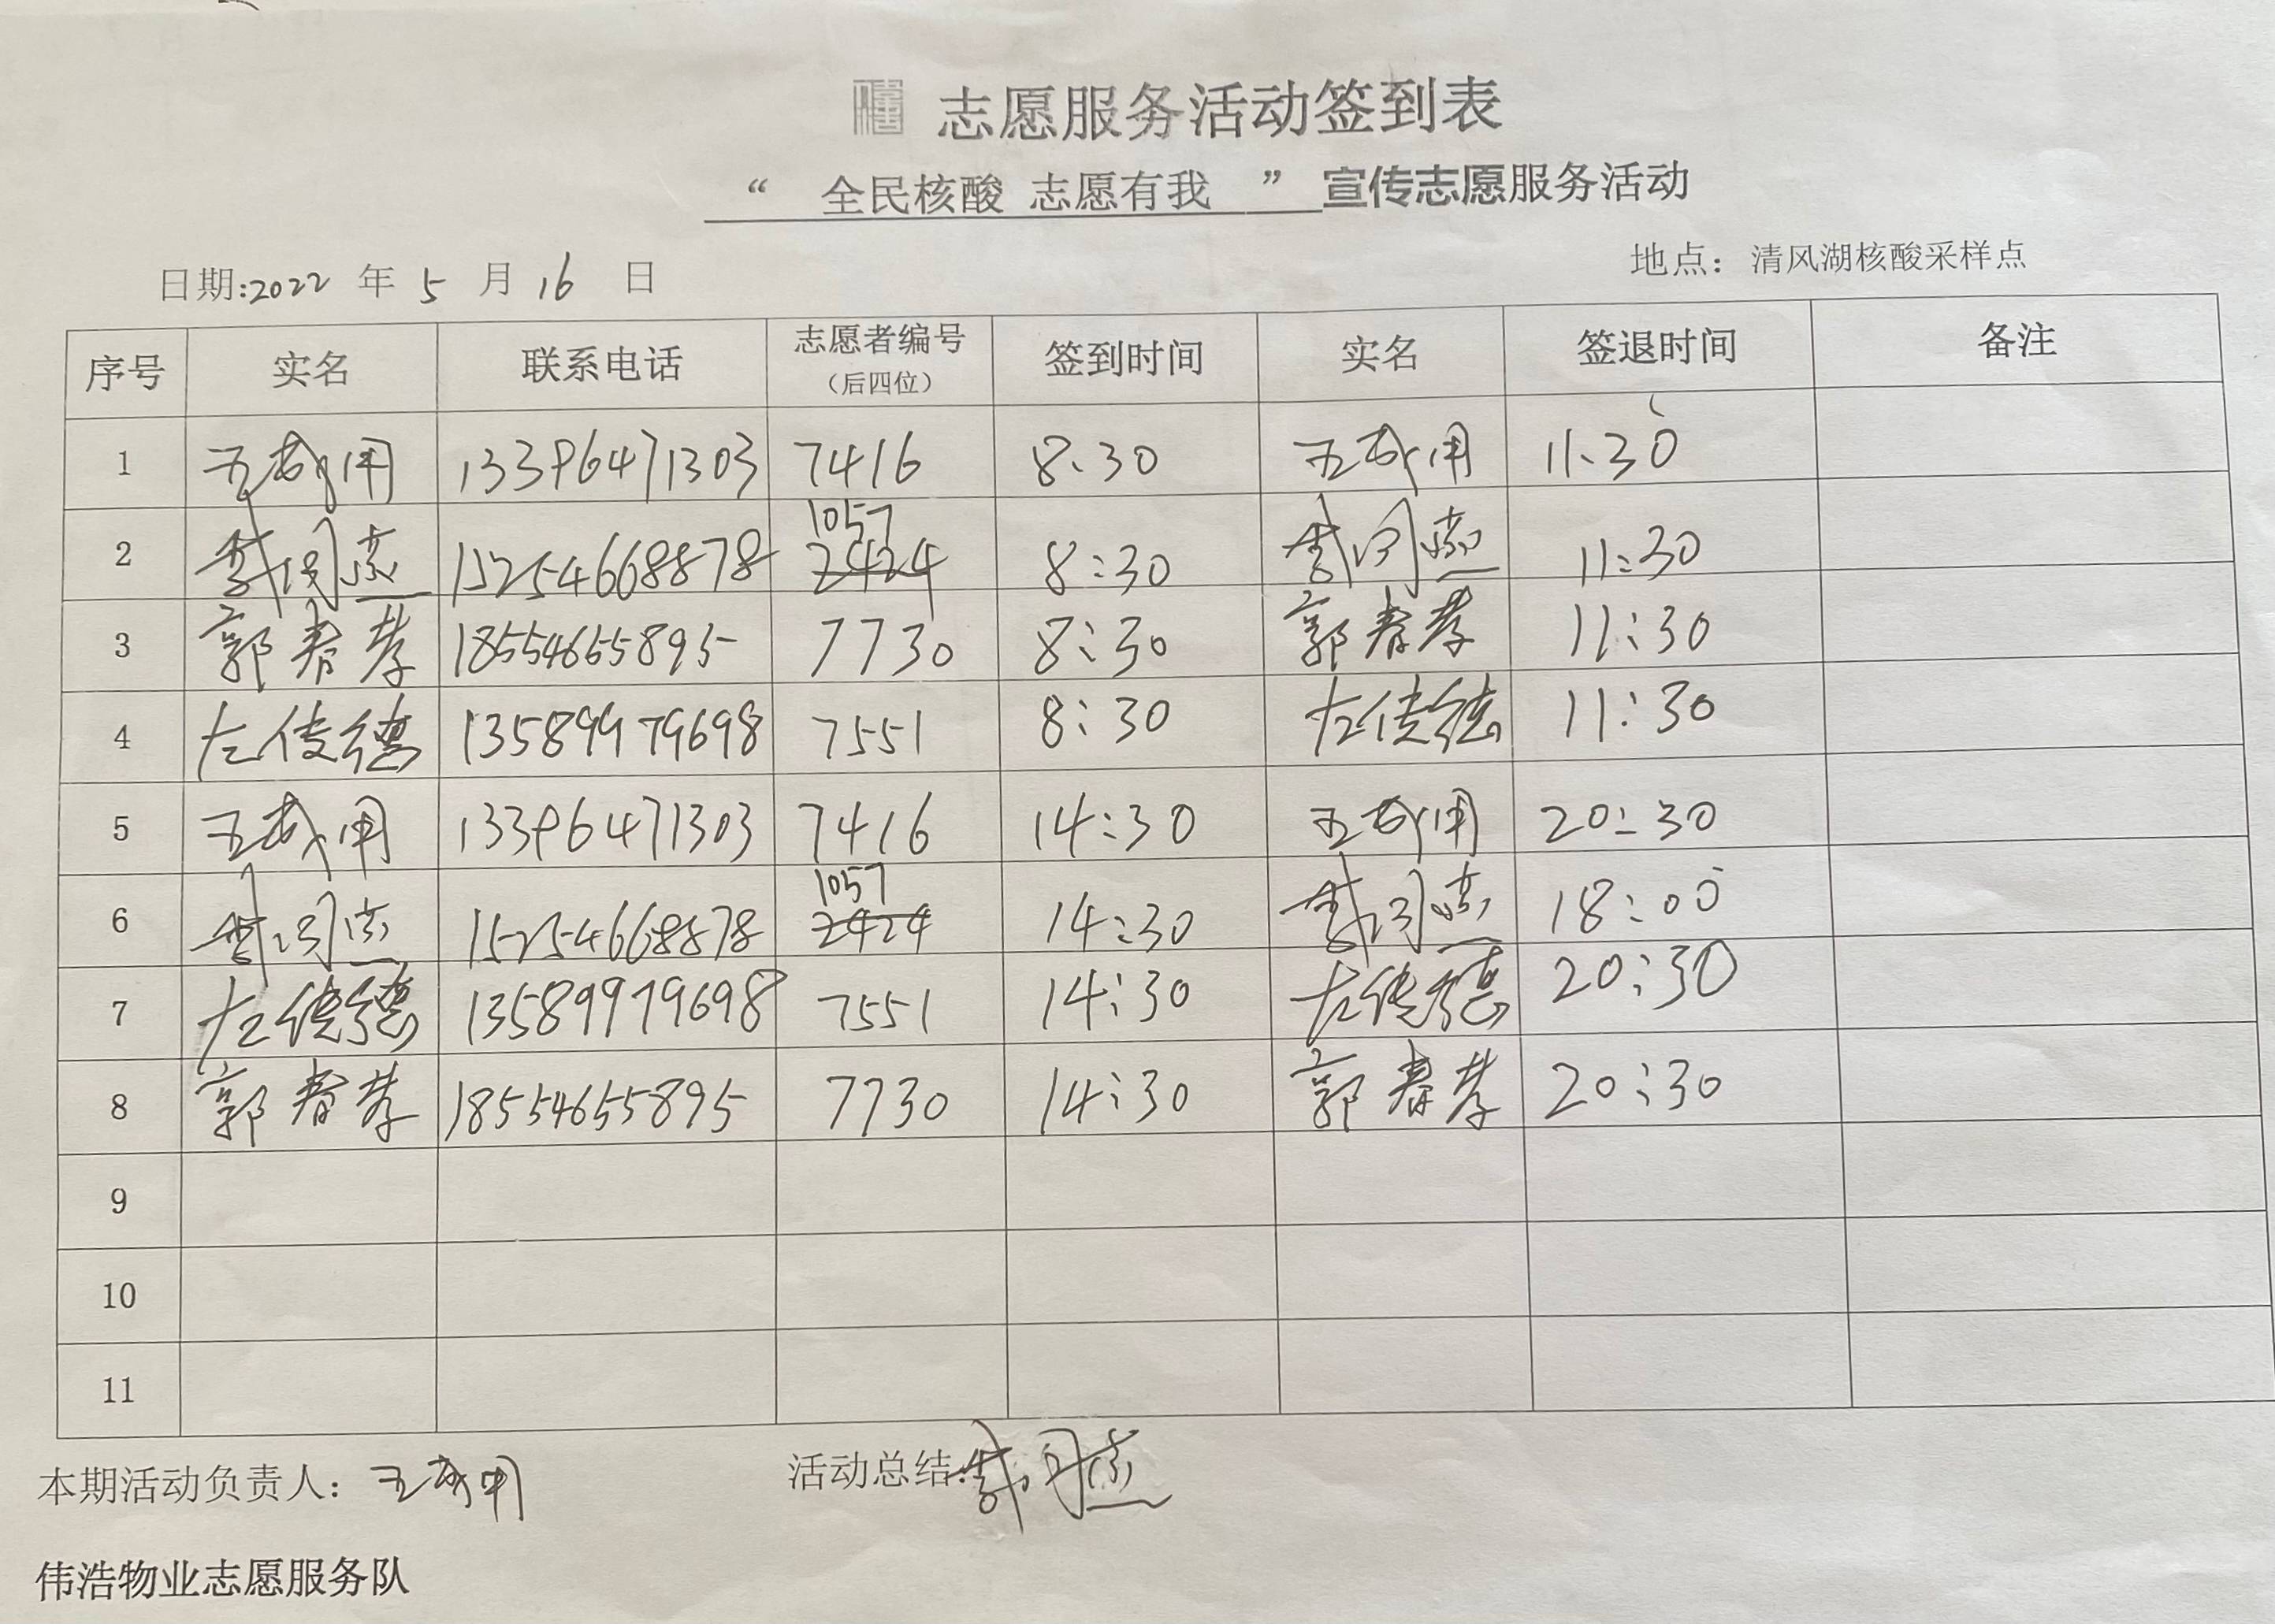 志愿服务活动签到表
“ 全民核酸 志愿有我 ” 宣传志愿服务活动
日期:2022 年 5 月 16 日 地点：清风湖核酸采样点
序号 实名 联系电话 志愿者编号（后四位） 签到时间 实名 签退时间 备注
1 13396471303 7416 8:30 11:30
2 15254668878 1057 2424 8:30 11:30
3 郭春孝 18554655895 7730 8:30 郭春孝 11:30
4 左传德 13589979698 7551 8:30 左传德 11:30
5 13396471303 7416 14:30 20:30
6 15254668878 1057 2424 14:30 18:00
7 左传德 13589979698 7551 14:30 左传德 20:30
8 郭春孝 18554655895 7730 14:30 郭春孝 20:30
9
10
11
本期活动负责人： 活动总结:
伟浩物业志愿服务队